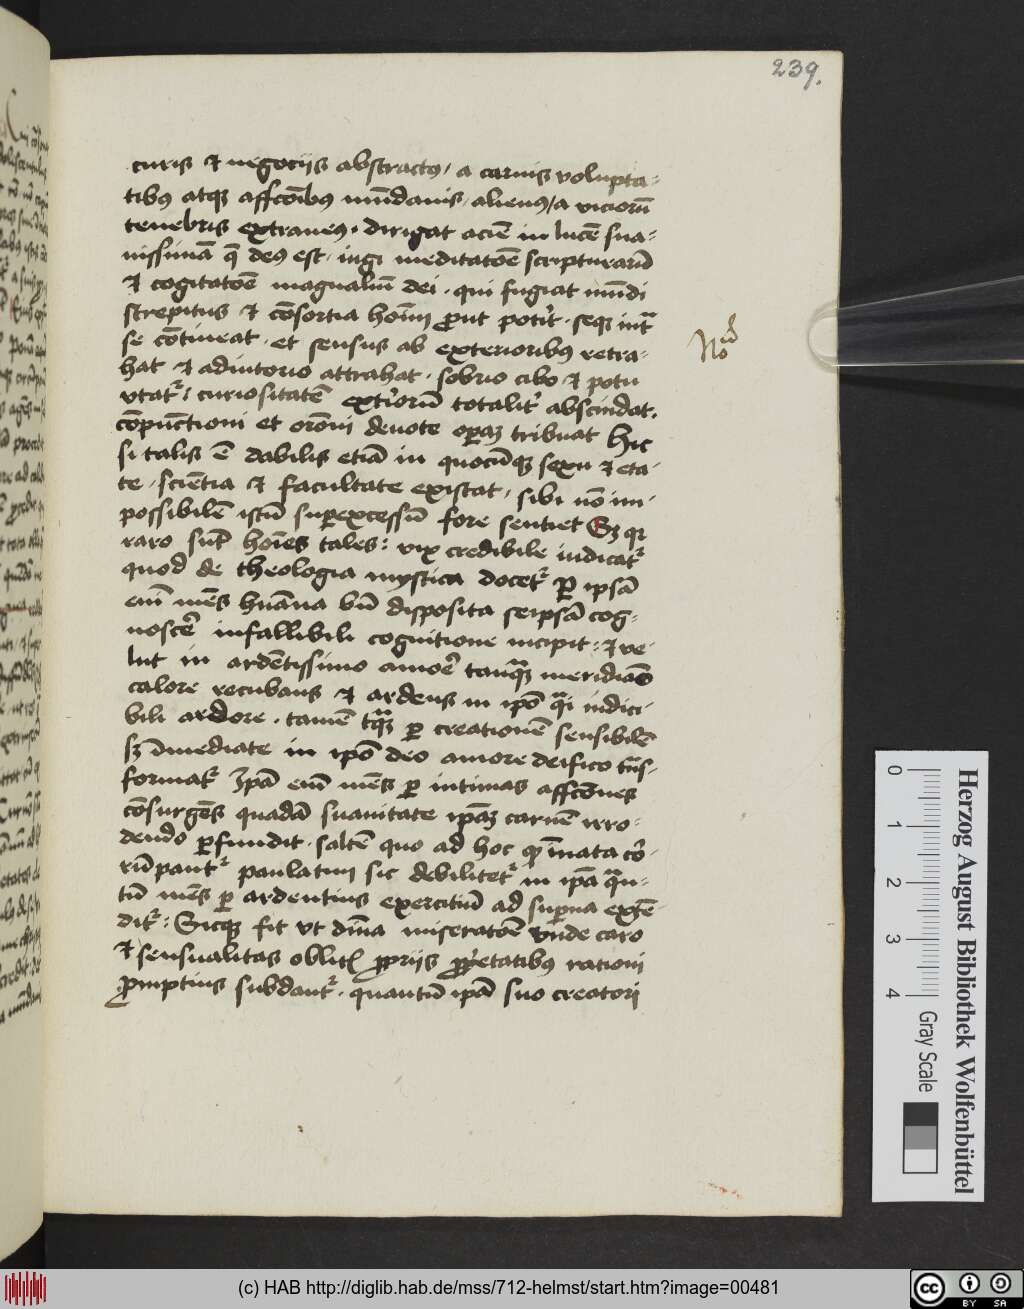 239.
curis et negociis abstractus / a carnis volupta-
tibus atque affcōibus mūdanis, alienus / a viciorū
tenebris extraneus, dirigat aciē in lucē sua-
uissimā q̄ deus est. iugi meditatōe scripturarū
et cogitatōe magnaliū dei. qui fugiat mūdi
strepitus et cōsortia hoīm prout poterit. seque intra
se cōtineat. et sensus ab exterioribus retra-
hat et adiutorio attrahat. sobrio cibo et potu
vtatur / curiositatē exteriorū totaliter abscindat.
cōpūctioni et orōni deuote operam tribuat Hic
si talis ē dabilis etiā in quocūque sexu et eta-
te. sciētia et facultate existat, sibi nō im-
possibilē istū superexcessū fore sentiet Sed quia
raro sūt hoīes tales: vix credibile iudicatur
quod de theologia mystica docetur per ipsā
eīm mēs huāna bū disposita seipsā cog-
noscere infallibili cognitione incipit: et ve-
lut in ardētissimo amore tanquam meridiano
calore recubans et ardens in ipō quasi indici-
bili ardore. tamē per creationē sensibilē
sed īmediate in ipō deo amore deifico trās-
formatur Ipā eīm mēs per intimas affcōnes
cōsurgēs quadā suauitate ipam carnē irro-
dendo perfundit. saltē quo ad hoc īnata cor-
rūpantur paulatim sic debilitetur in ipā quan-
tū mēs per ardentius exercitiū ad superna extē-
ditur: Sicque fit vt diuīa miseratōe vnde caro
et sensualitas propriis proprietatibus rationi
promptius subdantur. quantū ipā suo creatori
Herzog August Bibliothek Wolfenbüttel
0 1 2 3 4
Gray Scale
(c) HAB http://diglib.hab.de/mss/712-helmst/start.htm?image=00481
cc BY SA